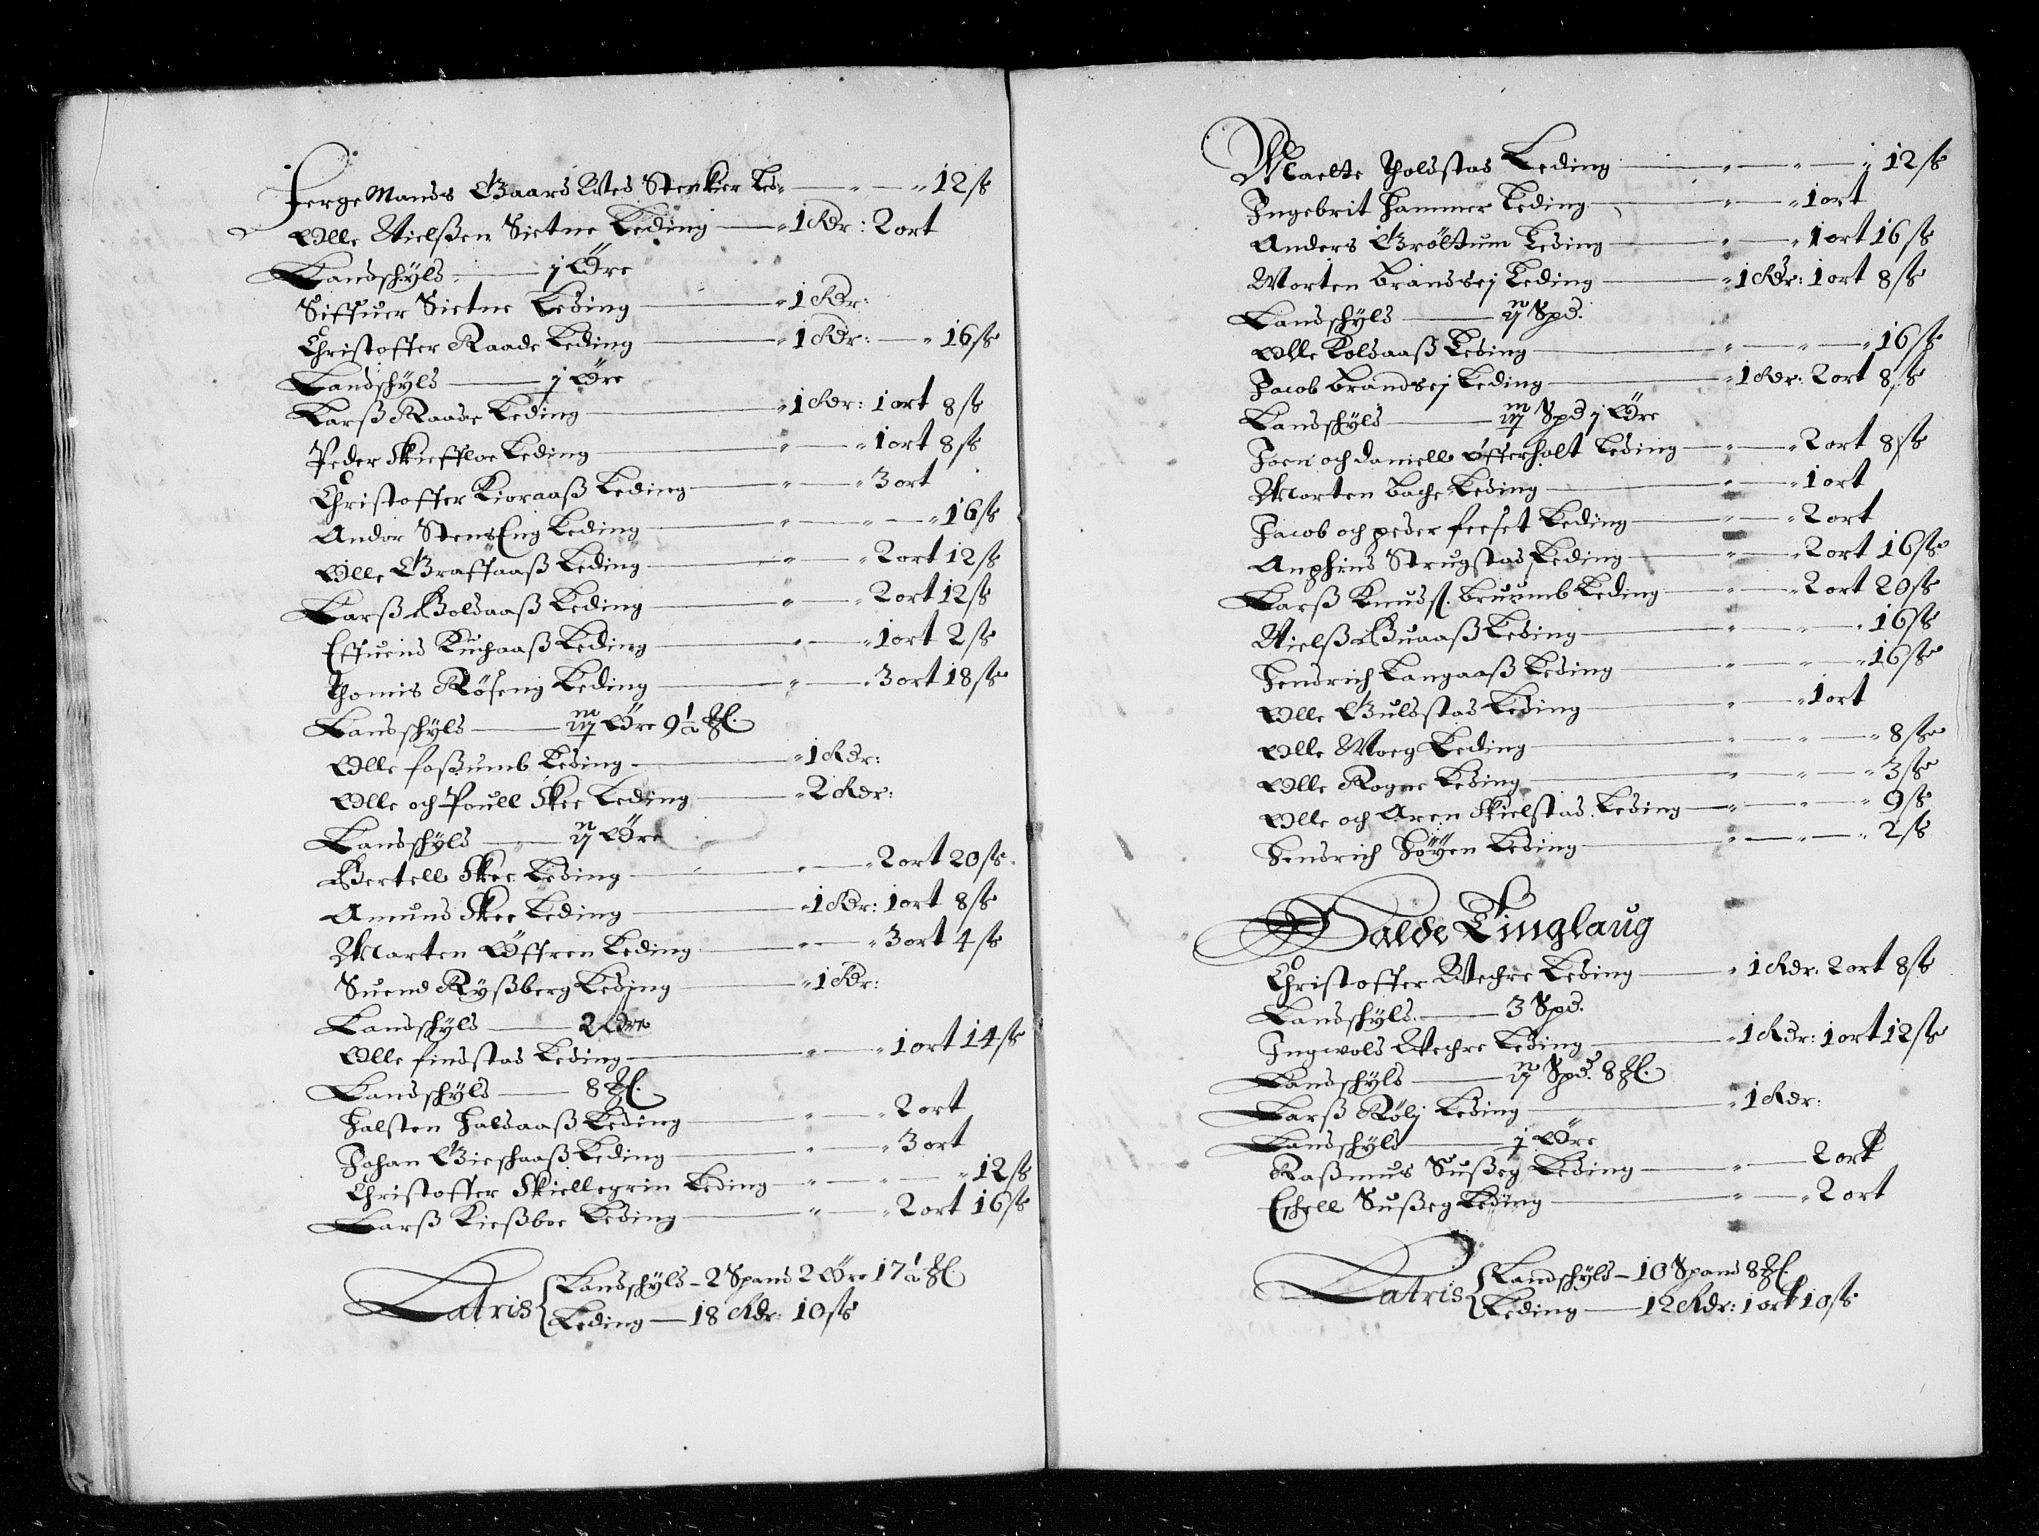 Ferge Mands Gaard Ved Stenkier Led. — " — " 12 ß
Olle Nielßen Sietne Leding — 1 Rdr: 2 ort
Landschÿld — j Øre
Siffuer Sietne Leding — 1 Rdr:
Christoffer Raade Leding — 1 Rdr: — " 16 ß
Landschÿld — j Øre
Larß Raade Leding — 1 Rdr: 1 ort 8 ß
Peder Skieffloe Leding — " — 1 ort 8 ß
Christoffer Kioraaß Leding — " — 3 ort
Andor StensEng Leding — " — " — 16 ß
Olle Graffaaß Leding — " — 2 ort 12 ß
Larß Boldaaß Leding — " — 2 ort 12 ß
Effuind Kuchaaß Leding — " — 1 ort 2 ß
Thomis Røseng Leding — " — 3 ort 18 ß
Landschÿld — iij Øre 9 1/2
Olle foßumb Leding — 1 Rdr:
Olle och Poull Skee Leding — 2 Rdr:
Landschÿld — ij Øre
Bertell Skee Leding — " — 2 ort 20 ß
Amund Skee Leding — 1 Rdr: 1 ort 8 ß
Marten Øffren Leding — " — 3 ort 4 ß
Suend Rÿßberg Leding — 1 Rdr:
Landschÿld — 2 Øre
Olle findstad Leding — " — 1 ort 14 ß
Landschÿld — 8
Halsten Haldaaß Leding — " — 2 ort
Johan Gieschaaß Leding — " — 3 ort
Christoffer Skiellegrin Leding — " — " — 12 ß
Larß Kießboe Leding — " — 2 ort 16 ß
Latris { Landschÿld – 2 Spand 2 Øre 17 1/2
Leding — 18 Rdr: 10 ß
Maelte Tholdstad Leding — " — " — 12 ß
Ingebrit Hammer Leding — " — 1 ort
Anders Grøltum Leding — " — 1 ort 16 ß
Morten brandsej Leding — 1 Rdr: 1 ort 8 ß
Landschÿld — ij Spd.
Olle Koldaaß Leding — " — " — 16 ß
Jacob brandsej Leding — 1 Rdr: 2 ort 8 ß
Landschÿld — iij Spd j Øre
Joen och daniell Øfferholt Leding — " — 2 ort 8 ß
Marten bache Leding — " — 1 ort
Jacob och peder feeset Leding — " — 2 ort
Anphind Strugstad Leding — " — 2 ort 16 ß
Larß Knudß. bruumb Leding — " — 2 ort 20 ß
Nielß Buaaß Leding — " — " — 16 ß
Hendrich Langaaß Leding — " — " — 16 ß
Olle Guldstad Leding — " — 1 ort
Olle Moeg Leding — " — " — 8 ß
Olle Rogne Leding — " — " — 3 ß
Olle och Aren Skielstad Leding — " — " — 9 ß
Hendrich Høÿen Leding — " — " — 2 ß
Dalde Tinglaug
Christoffer Wechre Leding — 1 Rdr: 2 ort 8 ß
Landschÿld — 3 Spd.
Ingwold Wechre Leding — 1 Rdr: 1 ort 12 ß
Landschÿld — ij Spd. 8
Larß Rølj Leding — 1 Rdr:
Landschÿld — j Øre
Raßmus Sußeg Leding — " — 2 ort
Eschell Sußeg Leding — " — 2 ort
Latris { Landschÿld – 10 Spand 8
Leding — 12 Rdr: 1 ort 10 ß